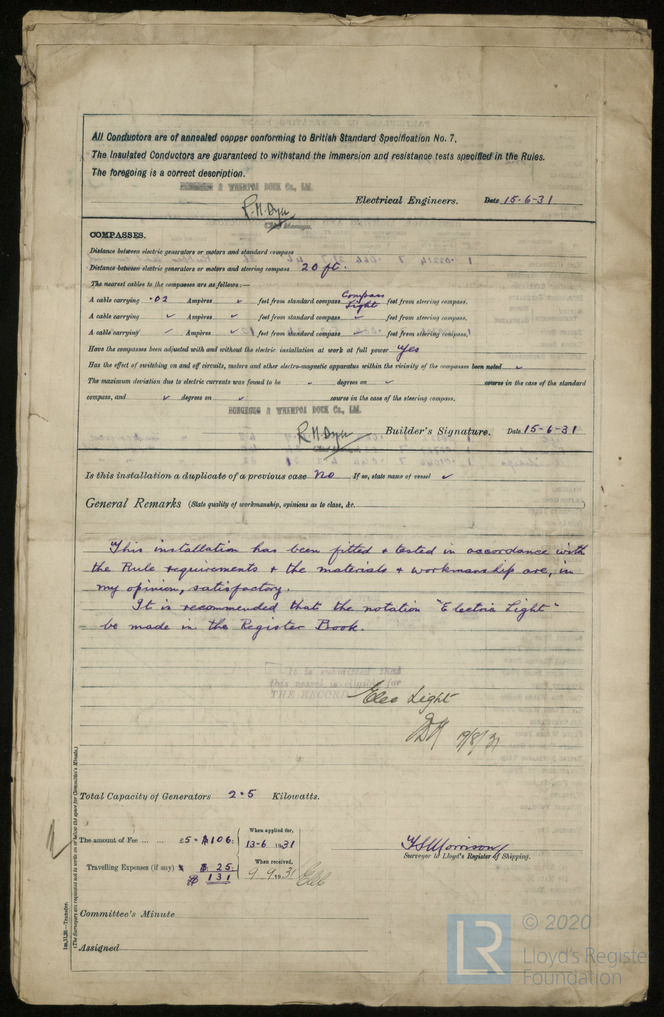 All Conductors are of annealed copper conforming to British Standard Specification No. 7.
The Insulated Conductors are guaranteed to withstand the immersion and resistance tests specified in the Rules.
The foregoing is a correct description.
& WHAMPOA DOCK Co., Ld.
R.H.Dyer Electrical Engineers. Date 15-6-31
Chief Manager.
COMPASSES.
Distance between electric generators or motors and standard compass
Distance between electric generators or motors and steering compass 20 ft.
The nearest cables to the compasses are as follows:—
A cable carrying .02 Ampères feet from standard compass Compass Light feet from steering compass.
A cable carrying Ampères feet from standard compass feet from steering compass.
A cable carrying Ampères feet from standard compass feet from steering compass.
Have the compasses been adjusted with and without the electric installation at work at full power Yes
Has the effect of switching on and off circuits, motors and other electro-magnetic apparatus within the vicinity of the compasses been noted
The maximum deviation due to electric currents was found to be degrees on course in the case of the standard
compass, and degrees on course in the case of the steering compass.
HONGKONG & WHAMPOA DOCK Co., Ld.
R.H.Dyer Builder's Signature. Date 15-6-31
Is this installation a duplicate of a previous case No If so, state name of vessel
General Remarks (State quality of workmanship, opinions as to class, &c.
This installation has been fitted & tested in accordance with
the Rule requirements & the materials & workmanship are, in
my opinion, satisfactory.
It is recommended that the notation "Electric Light"
be made in the Register Book.
It is submitted that
this vessel is eligible for
THE RECORD Elec Light
19/8/31
Total Capacity of Generators 2.5 Kilowatts.
The amount of Fee ... ... £5 = $106: When applied for, 13-6 1931
Travelling Expenses (if any) $ 25: When received, 9.9.1931
$ 131
T.S. Morrison
Surveyor to Lloyd's Register of Shipping.
Committee's Minute
Assigned
(The Surveyors are requested not to write on or below the space for Committee's Minute.)
LR © 2020
Lloyd's Register
Foundation